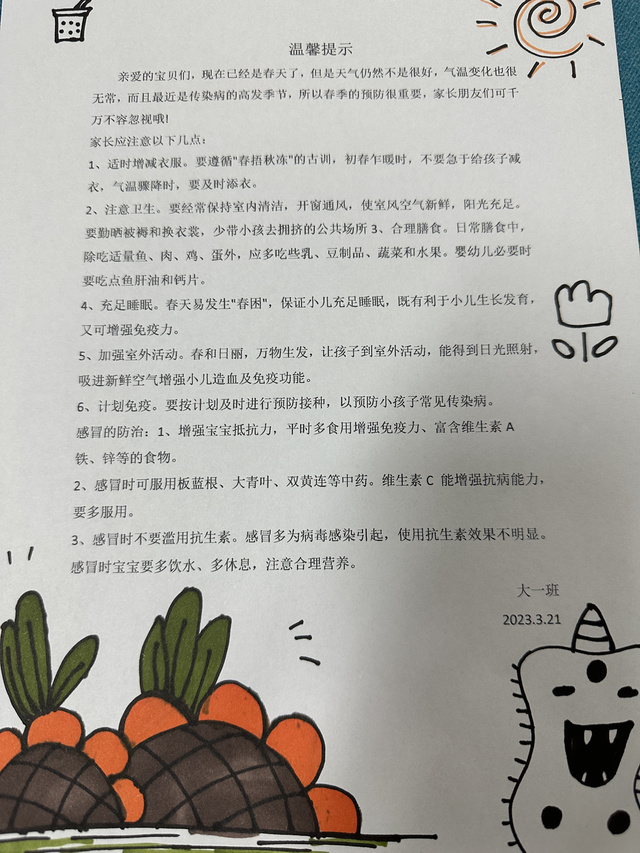 温馨提示
亲爱的宝贝们，现在已经是春天了，但是天气仍然不是很好，气温变化也很
无常，而且最近是传染病的高发季节，所以春季的预防很重要，家长朋友们可千
万不容忽视哦!
家长应注意以下几点：
1、适时增减衣服。要遵循"春捂秋冻"的古训，初春乍暖时，不要急于给孩子减
衣，气温骤降时，要及时添衣。
2、注意卫生。要经常保持室内清洁，开窗通风，使室风空气新鲜，阳光充足。
要勤晒被褥和换衣裳，少带小孩去拥挤的公共场所 3、合理膳食。日常膳食中，
除吃适量鱼、肉、鸡、蛋外，应多吃些乳、豆制品、蔬菜和水果。婴幼儿必要时
要吃点鱼肝油和钙片。
4、充足睡眠。春天易发生"春困"，保证小儿充足睡眠，既有利于小儿生长发育，
又可增强免疫力。
5、加强室外活动。春和日丽，万物生发，让孩子到室外活动，能得到日光照射，
吸进新鲜空气增强小儿造血及免疫功能。
6、计划免疫。要按计划及时进行预防接种，以预防小孩子常见传染病。
感冒的防治：1、增强宝宝抵抗力，平时多食用增强免疫力、富含维生素 A
铁、锌等的食物。
2、感冒时可服用板蓝根、大青叶、双黄连等中药。维生素 C 能增强抗病能力，
要多服用。
3、感冒时不要滥用抗生素。感冒多为病毒感染引起，使用抗生素效果不明显。
感冒时宝宝要多饮水、多休息，注意合理营养。
大一班
2023.3.21